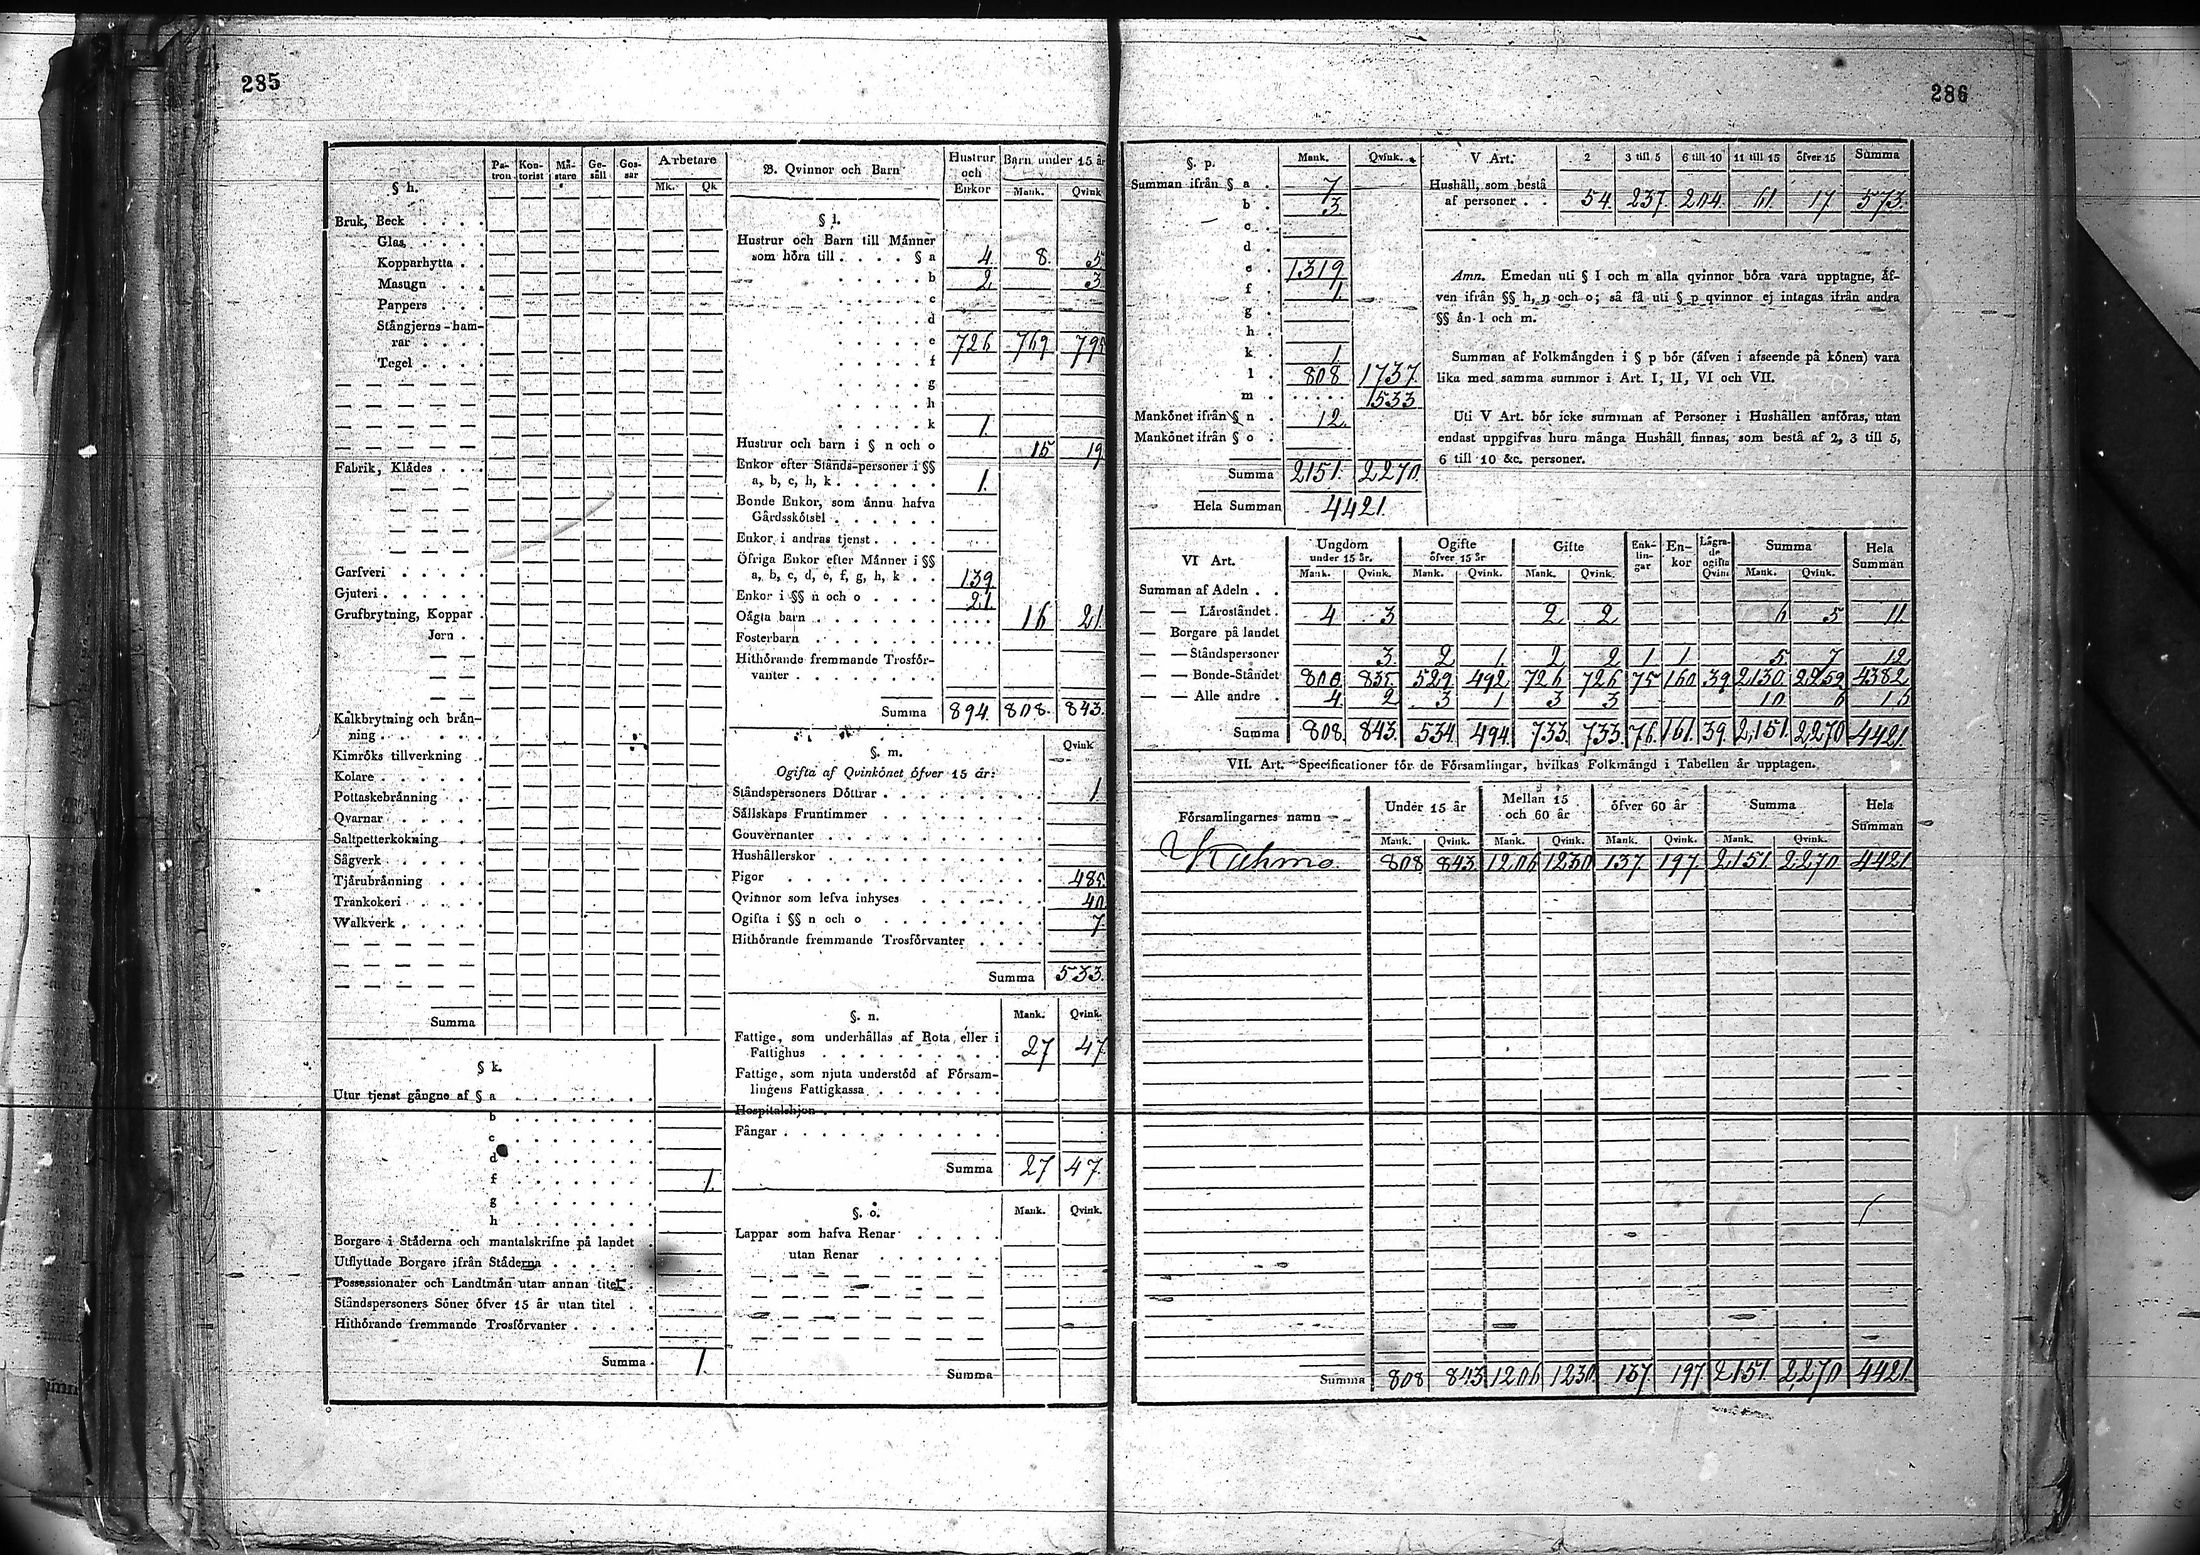 285
§ h.
Pa-tron Kon-torist Mä-stare Ge-säll Gos-sar Arbetare
Mk. Qk
Bruk, Beck . . . .
Glas . . . .
Kopparhytta . .
Masugn . . .
Pappers . . .
Stångjerns-ham-
rar . . . .
Tegel . . . .
Fabrik, Klädes . . .
Garfveri . . . . .
Gjuteri . . . . .
Grufbrytning, Koppar .
Jern . .
Kalkbrytning och brän-
ning . . . . . .
Kimröks tillverkning .
Kolare . . . . . .
Pottaskebränning . . .
Qvarnar . . . . .
Saltpetterkokning . . .
Sågverk . . . . .
Tjärubränning . . .
Trankokeri . . . .
Walkverk . . . . .
Summa
§ k.
Utur tjenst gångne af § a . . . . . . .
b . . . . . . .
c . . . . . . .
d . . . . . . .
f . . . . . . . 1.
g . . . . . . .
h . . . . . . .
Borgare i Städerna och mantalskrifne på landet .
Utflyttade Borgare ifrån Städerna . . . . .
Possessionater och Landtmän utan annan titel .
Ståndspersoners Söner öfver 15 år utan titel . .
Hithörande fremmande Trosförvanter . . . .
Summa 1.
B. Qvinnor och Barn
Hustrur och Enkor Barn under 15 år
Mank. Qvink
§ l.
Hustrur och Barn till Männer
som höra till . . . . § a 4. 8. 5
. . . . . b 2. 3
. . . . . c
. . . . . d
. . . . . e 726 769. 795
. . . . . f
. . . . . g
. . . . . h
. . . . . k 1.
Hustrur och barn i § n och o 15 19.
Enkor efter Stånds-personer i §§
a, b, c, h, k . . . . . . 1.
Bonde Enkor, som ännu hafva
Gårdsskötsel . . . . . .
Enkor i andras tjenst . . . .
Öfriga Enkor efter Männer i §§
a, b, c, d, e, f, g, h, k . . 139.
Enkor i §§ n och o . . . . 21.
Oägta barn . . . . . . . . . . . 16 21.
Fosterbarn . . . . . . . . . . .
Hithörande fremmande Trosför-
vanter . . . . . . . .
Summa 894. 808. 843.
§. m. Qvink
Ogifta af Qvinkönet öfver 15 år:
Ståndspersoners Döttrar . . . . . . . . 1
Sällskaps Fruntimmer . . . . . . . . .
Gouvernanter . . . . . . . . . . .
Hushållerskor . . . . . . . . . . .
Pigor . . . . . . . . . . . . . 485.
Qvinnor som lefva inhyses . . . . . . 40
Ogifta i §§ n och o . . . . . . . . . 7.
Hithörande fremmande Trosförvanter . . . .
Summa 533.
§. n. Mank. Qvink.
Fattige, som underhållas af Rota eller i
Fattighus . . . . . . . . . . 27 47
Fattige, som njuta understöd af Församlingens
lingens Fattigkassa . . . . . . .
Hospitalshjon . . . . . . . . . .
Fångar . . . . . . . . . . . .
Summa 27 47.
§. o. Mank. Qvink.
Lappar som hafva Renar . . . . .
utan Renar . . . . . .
Summa
286
§. p. Mank. Qvink.
Summan ifrån § a . 7
b . 3.
c .
d .
e . 1319
f . 1.
g .
h .
k . 1.
l . 808 1737.
m . . . . . . 1533
Mankönet ifrån § n . 12.
Mankönet ifrån § o .
Summa 2151. 2270.
Hela Summan 4421.
V Art. 2 3 till 5 6 till 10 11 till 15 öfver 15 Summa
Hushåll, som bestå
af personer . . 54. 237. 204. 61. 17 573.
Amn. Emedan uti § l och m alla qvinnor böra vara upptagne, äf-
ven ifrån §§ h, n och o; så få uti § p qvinnor ej intagas ifrån andra
§§ än l och m.
Summan af Folkmängden i § p bör (äfven i afseende på könen) vara
lika med samma summor i Art. I, II, VI och VII.
Uti V Art. bör icke summan af Personer i Hushållen anföras, utan
endast uppgifvas huru många Hushåll finnas, som bestå af 2, 3 till 5,
6 till 10 &c. personer.
VI Art. Ungdom under 15 år. Ogifte öfver 15 år Gifte Enk-lin-gar En-kor Lägra-de ogifta Qvinn Summa Hela Summan
Mank. Qvink. Mank. Qvink. Mank. Qvink. Mank. Qvink.
Summan af Adeln . .
— — Läroståndet . 4 3 2 2 6 5 11
— Borgare på landet
— — Ståndspersoner 3. 2 1. 2 2 1 1 5. 7 12
— — Bonde-Ståndet 800. 835. 529. 492 726 726 75 160 39 2130. 2259. 4382
— — Alle andre . 4. 2 3 1 3 3 10 6 16
Summa 808. 843. 534. 494. 733. 733. 76. 161. 39. 2,151. 2,270 4421.
VII. Art. Specificationer för de Församlingar, hvilkas Folkmängd i Tabellen är upptagen.
Församlingarnes namn Under 15 år Mellan 15 och 60 år öfver 60 år Summa Hela Summan
Mank. Qvink. Mank. Qvink. Mank. Qvink. Mank. Qvink.
Kuhmo. 808 843. 1206 1230 137. 197. 2,151 2,270 4421
Summa 808 843 1206 1230. 137 197 2,151. 2,270 4421.